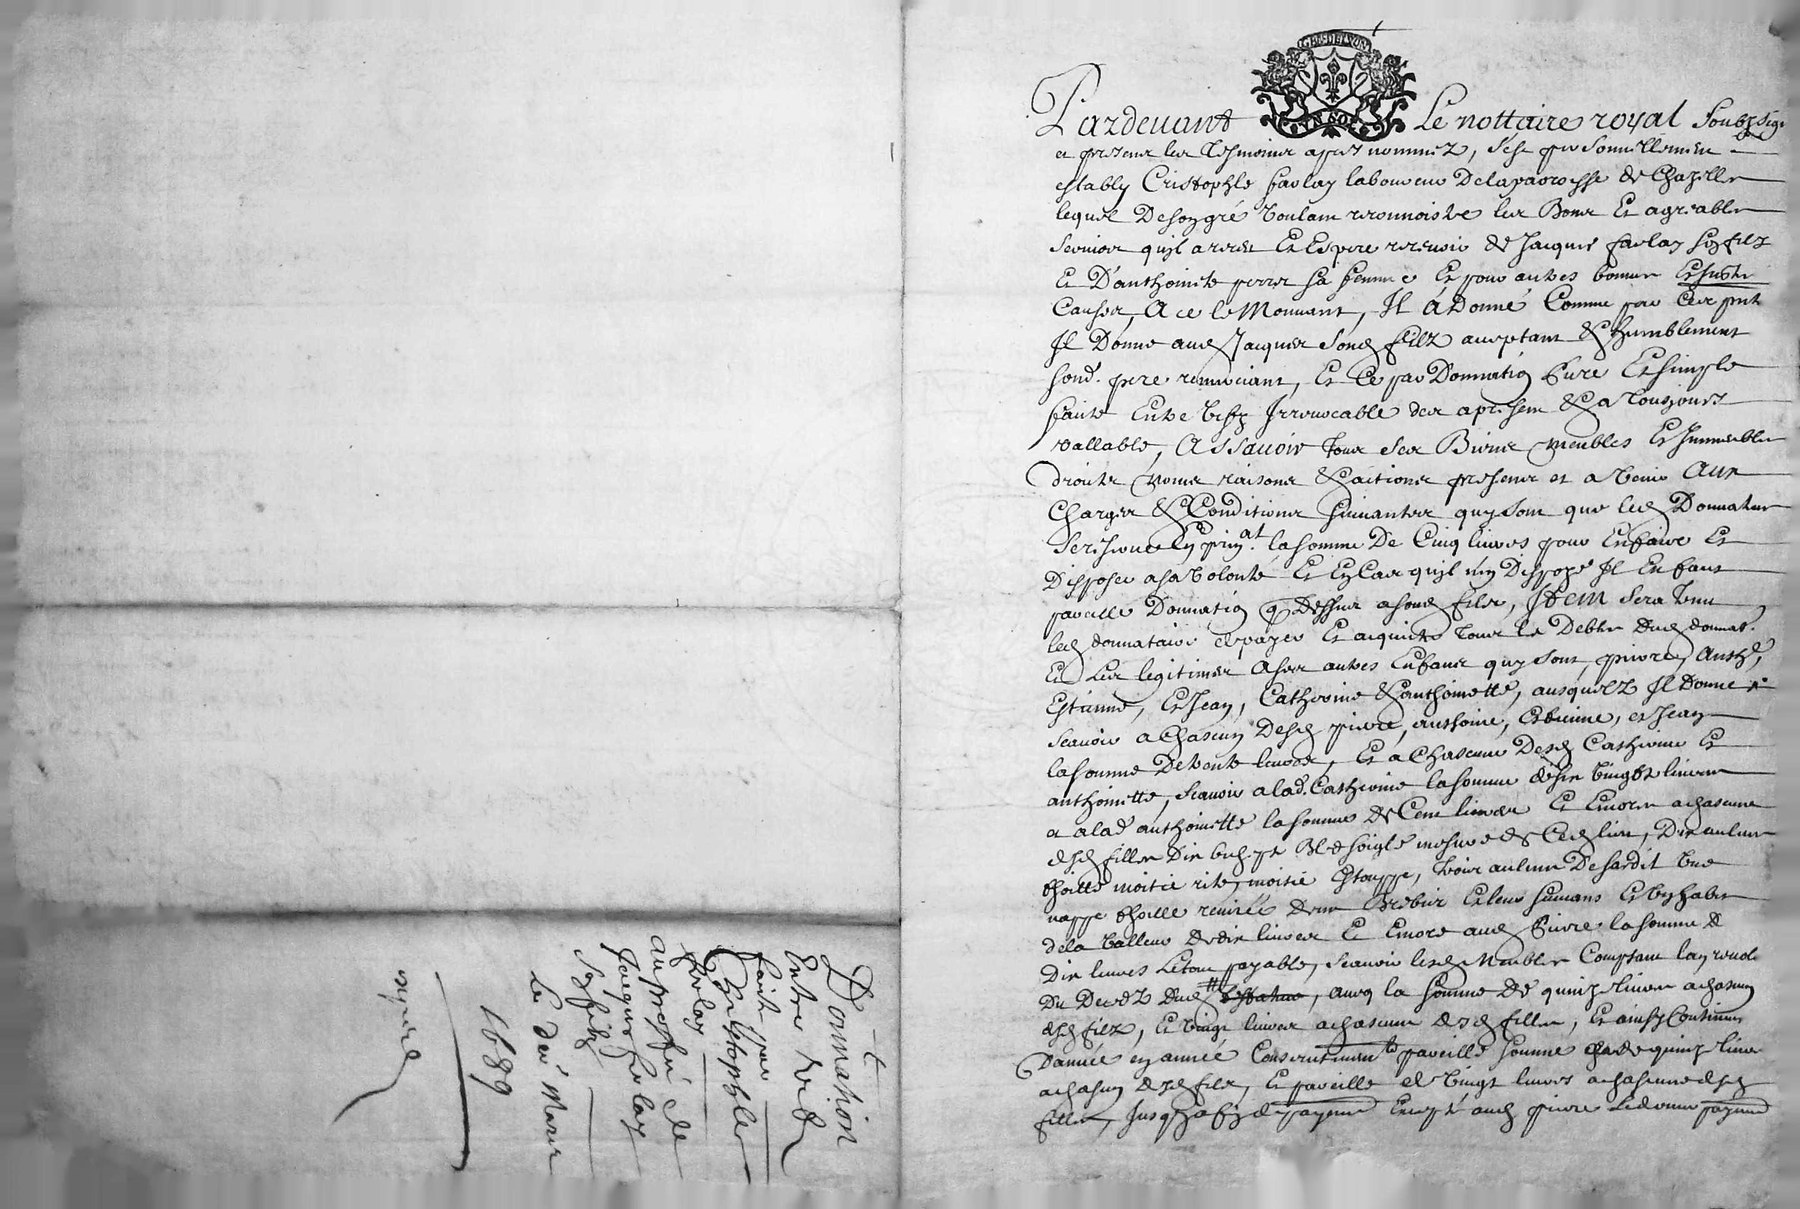 GEN. DE LYON
UN SOL
Pardevant Le nottaire royal Soubzsigé
et present les tesmoins apres nommez, s'est personnellement
estably Cristophle farlay laboureur De la parroisse de Chazelle
lequel De son gré Voulant reconnoistre les Bons Et agreables
services quil a receu Et Espere recevoir de Jacques farlay son filz
Et D'anthoinette perret sa femme Et pour autres bonnes Et justes
Causes, A ce le Mouvant, Il a Donné Comme par Ces pnts
Il Donne aud Jacques Sond filz acceptant & humblement
sond. pere remerciant, Et Ce par Donnation pure Et simple
faicte Entre Vifz Irrevocable des a present & a Tousjours
vallable, Assavoir Tous ses Biens meubles Et Immeubles
droicts noms raisons & actions presens et a Venir Aux
Charges & Conditions suivantes quy sont que led Donnateur
se reserve la somme De Cinq livres pour En faire Et
Disposer a sa Volonté Et En Cas quil nen Dispoze Il En faict
pareille Donnation q Dessus a sond filz, Item Sera tenu
led donnataire de payer Et acquitter Tous les Debtes dud donnat.
Et Les legitimes A ses autres Enfans quy sont, pierre, Anthe,
Estienne, Et Jean, Catherine & anthoinette, ausquelz Il Donne
scavoir a Chascun Desd pierre, anthoine, Estienne, et Jean
la somme De trente livres, Et a Chascune Desd Catherine Et
anthoinette, scavoir a lad. Catherine la somme de six vingtz livres
et a lad anthoinette la somme de Cent livres Et Encores a chascune
desd filles Dix bichetz Bled soigle mesure de Ced lieu, Dix aulnes
thoille moitie rite, moitié Estouppe, trois aulnes De sardit Une
nappe thoille
de la Valleur de dix livres Et Encore aud pierre la somme de
Dix livres Le tout payable, scavoir lesd Meubles Comptant
Du Deces Dud, avec la somme de quinze livres a chascun
desd filz, Et vingt livres a chascune desd filles, Et ainsy Continuer
D'année en année Consecutivement pareille somme de quinze livres
a chascun desd filz, Et pareille de Vingt livres a chascune desd
filles, Jusqz a fin de payement Excepté aud pierre
Donnation
Entre Vifz
faict par
Cristophle
farlay
au proffit de
Jacques farlay
son filz
Le der Mars
1689